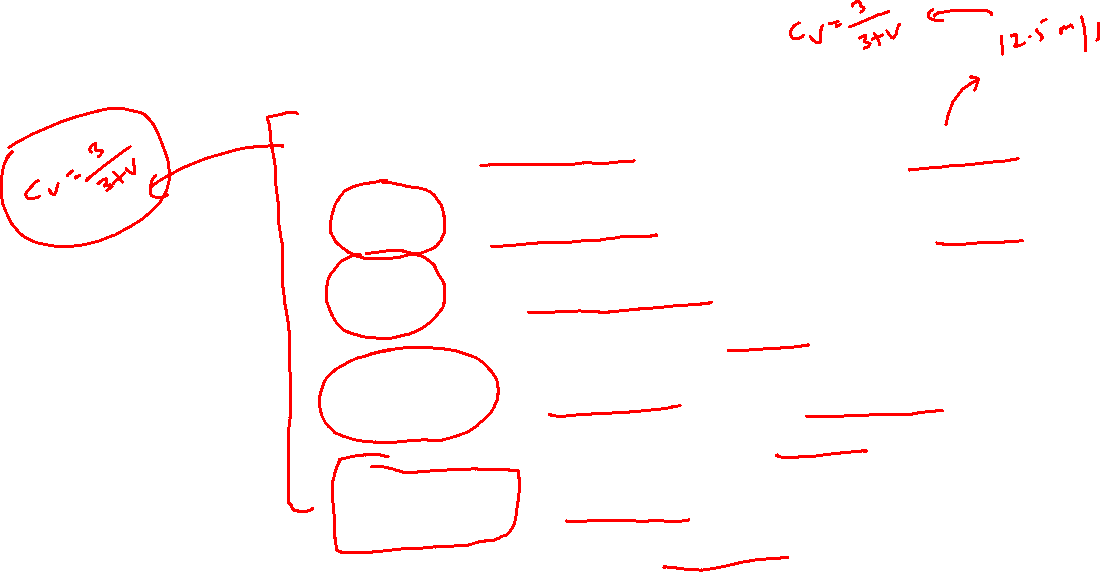 Cv = 3/(3+v)
12.5 m/s
Cv = 3/(3+v)